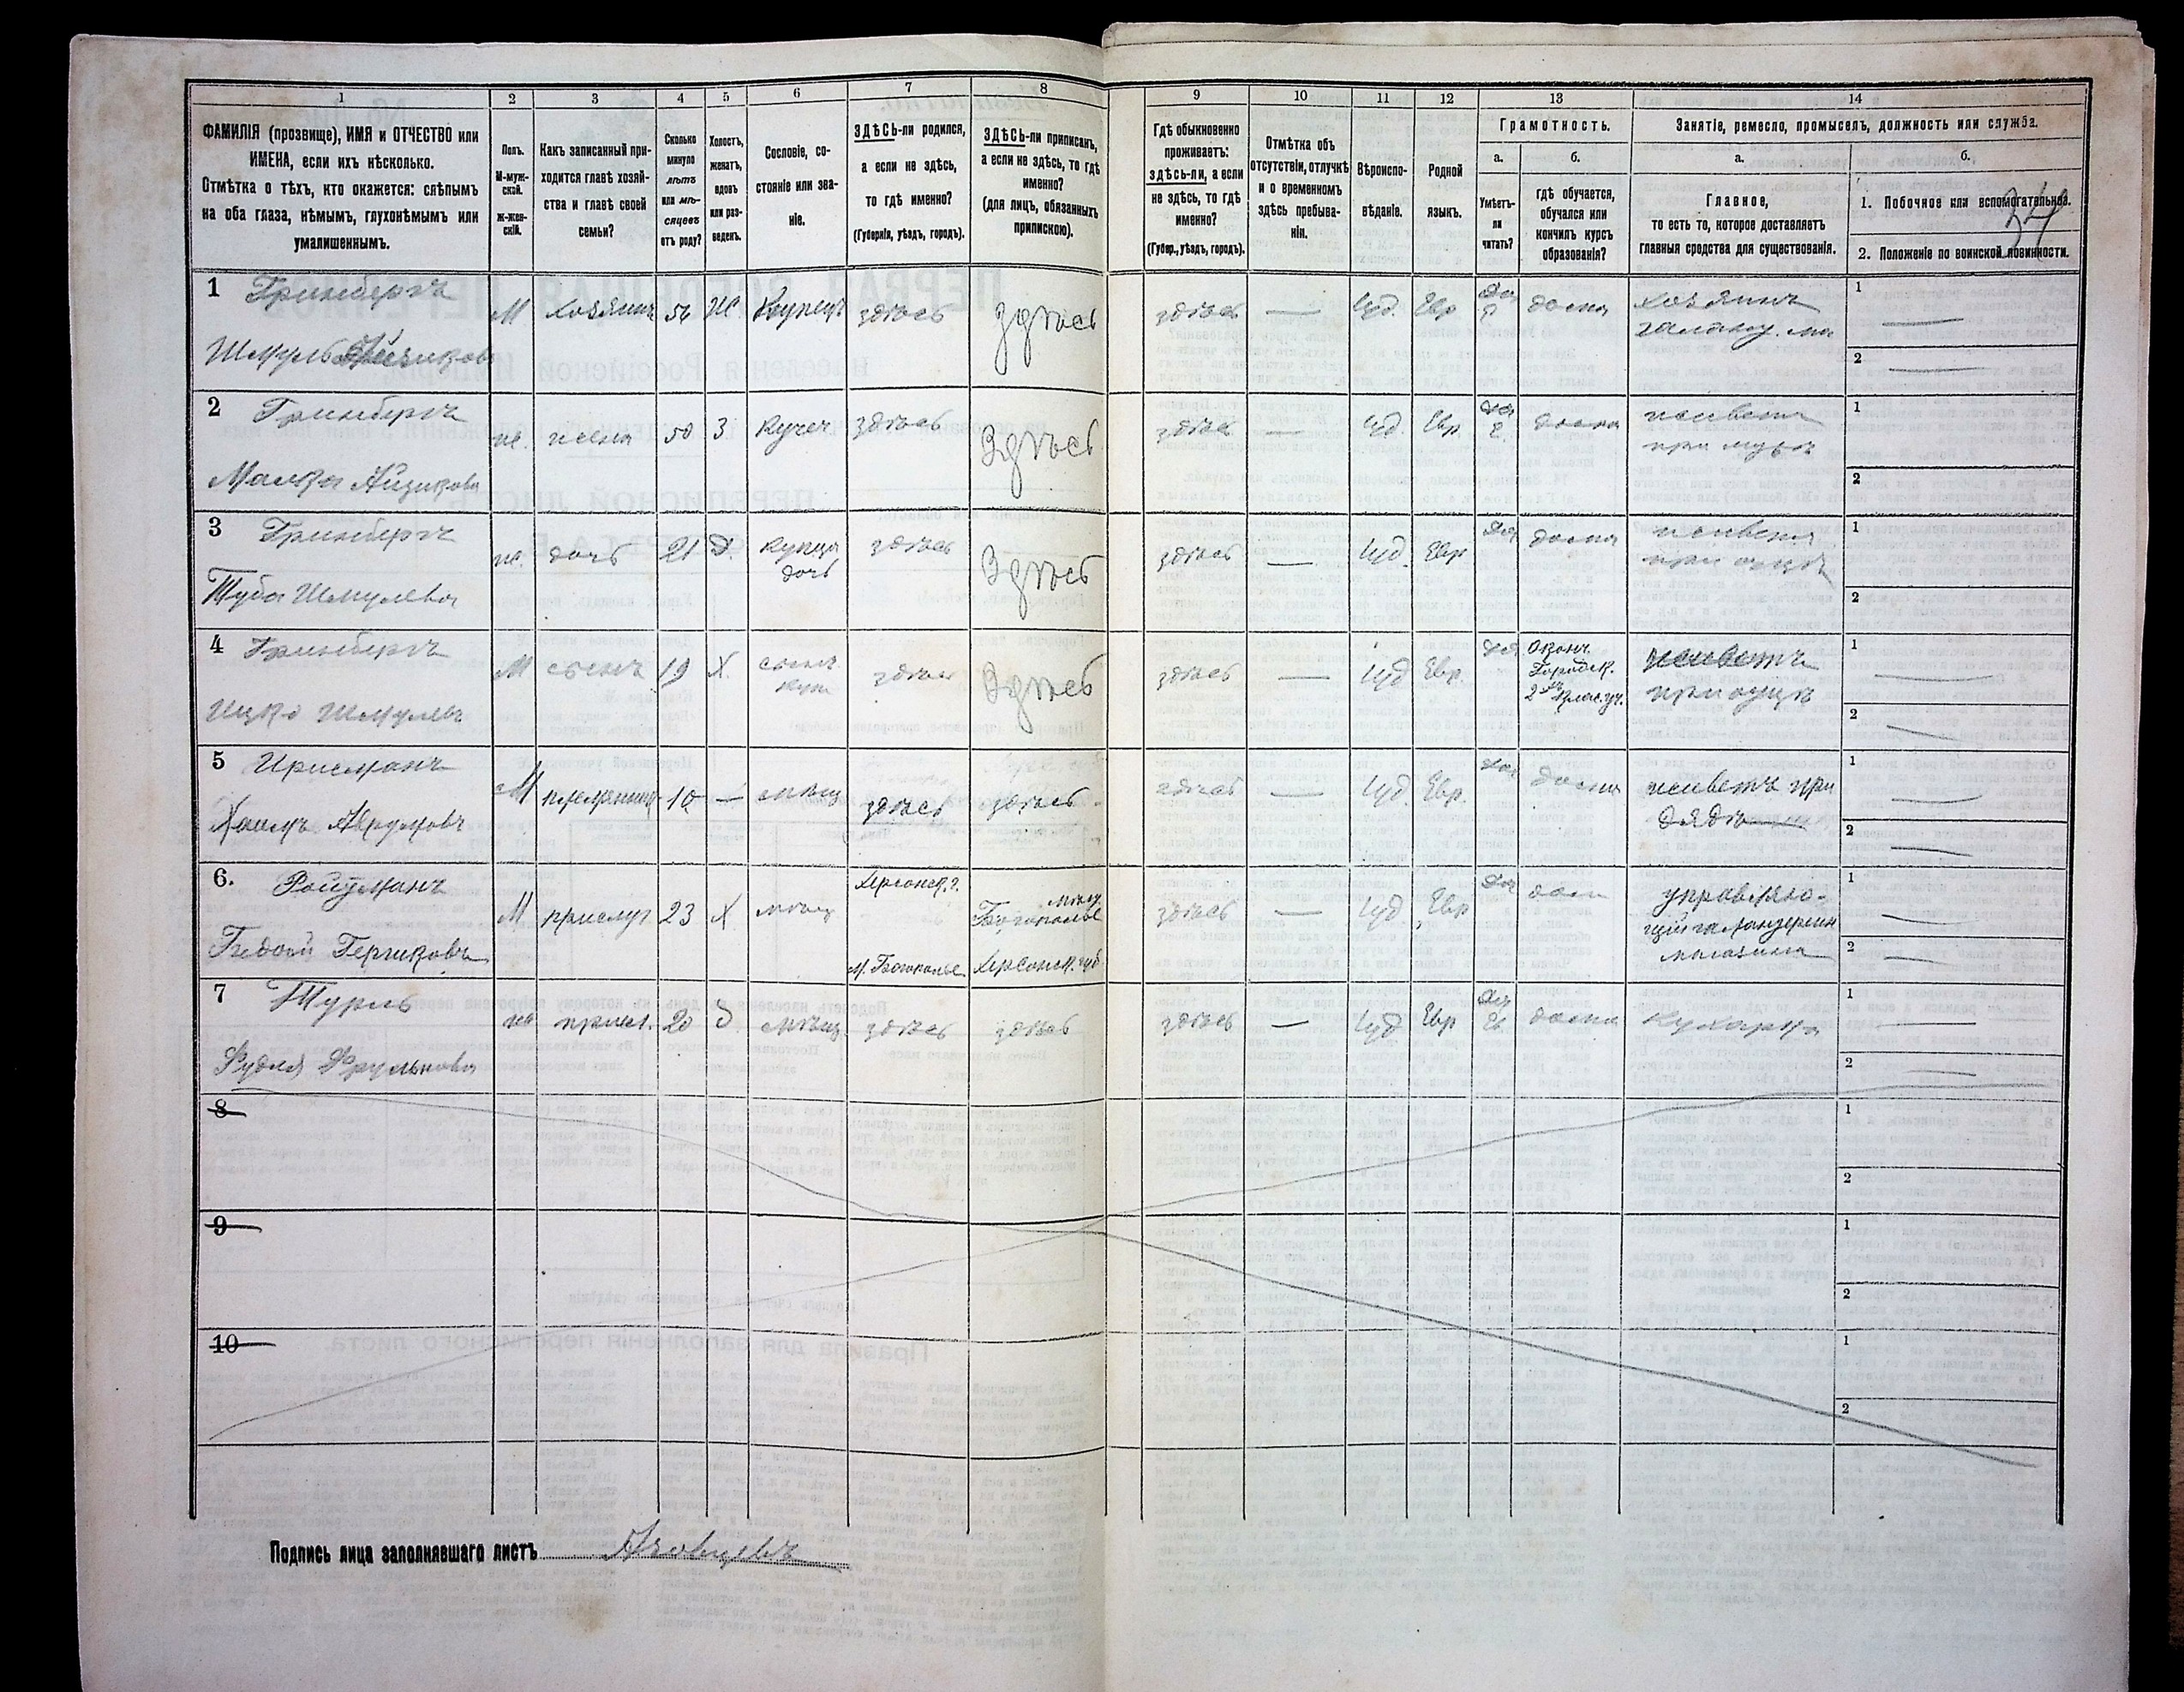 1 2 3 4 5 6 7 8 9 10 11 12 13 14
ФАМИЛІЯ (прозвище), ИМЯ и ОТЧЕСТВО или
ИМЕНА, если ихъ нѣсколько.
Отмѣтка о тѣхъ, кто окажется: слѣпымъ
на оба глаза, нѣмымъ, глухонѣмымъ или
умалишеннымъ.
Полъ.
М-муж-
ской.
ж-жен-
скій.
Какъ записанный при-
ходится главѣ хозяй-
ства и главѣ своей
семьи?
Сколько
минуло
лѣтъ
или мѣ-
сяцевъ
отъ роду?
Холостъ,
женатъ,
вдовъ
или раз-
веденъ.
Сословіе, со-
стояніе или зва-
ніе.
ЗДѢСЬ-ли родился,
а если не здѣсь,
то гдѣ именно?
(Губернія, уѣздъ, городъ).
ЗДѢСЬ-ли приписанъ,
а если не здѣсь, то гдѣ
именно?
(для лицъ, обязанныхъ
припискою).
Гдѣ обыкновенно
проживаетъ:
здѣсь-ли, а если
не здѣсь, то гдѣ
именно?
(Губер., уѣздъ, городъ).
Отмѣтка объ
отсутствіи, отлучкѣ
и о временномъ
здѣсь пребыва-
ніи.
Вѣроиспо-
вѣданіе.
Родной
языкъ.
Грамотность.
а.
Умѣетъ-
ли
читать?
б.
гдѣ обучается,
обучался или
кончилъ курсъ
образованія?
Занятіе, ремесло, промыселъ, должность или служба.
а.
Главное,
то есть то, которое доставляетъ
главныя средства для существованія.
б.
1. Побочное или вспомогательное.
34
2. Положеніе по воинской повинности.
1 Гринбергъ
Шмуль
М Хозяинъ 54 Ж Купецъ здѣсь Здѣсь здѣсь — Іуд. Евр да дома Хозяинъ
1 —
2 —
2 Гринбергъ
Малка Айзикова
ж. жена 50 З. Купеч здѣсь Здѣсь здѣсь — Іуд. Евр. да дома живетъ
при мужѣ
1
2
3 Гринбергъ
Туба Шмулева
ж. дочь 21 Д. купца
дочь здѣсь Здѣсь здѣсь — Іуд. Евр да дома живетъ
при отцѣ
1
2
4 Гринбергъ
Ицко Шмулевъ
М сынъ 19 Х. сынъ
купц здѣсь Здѣсь здѣсь — Іуд Евр. да Оконч.
Городск.
2хъ клас. уч. живетъ
при отцѣ
1
2 —
5 Крисманъ
Хаимъ Аврумовъ
М племянник 10 — мѣщ здѣсь здѣсь здѣсь — Іуд. Евр. да дома живетъ при
дядѣ
1 —
2 —
6. Ройтманъ
Гершковъ
М прислуг 23 Х мѣщ Херсонск. г.
м. Богополье мѣщ
Богополье
Херсонск. губ здѣсь — Іуд. Евр да дом управляю-
щій галантерейн
магазина
1 —
2 —
7 Турль
Рудля Фрулькова
ж присл. 20 Д мѣщ. здѣсь здѣсь здѣсь — Іуд Евр да дома кухарка
1 —
2 —
8 1
2
9 1
2
10 1
2
Подпись лица заполнявшаго листъ Азовцевъ